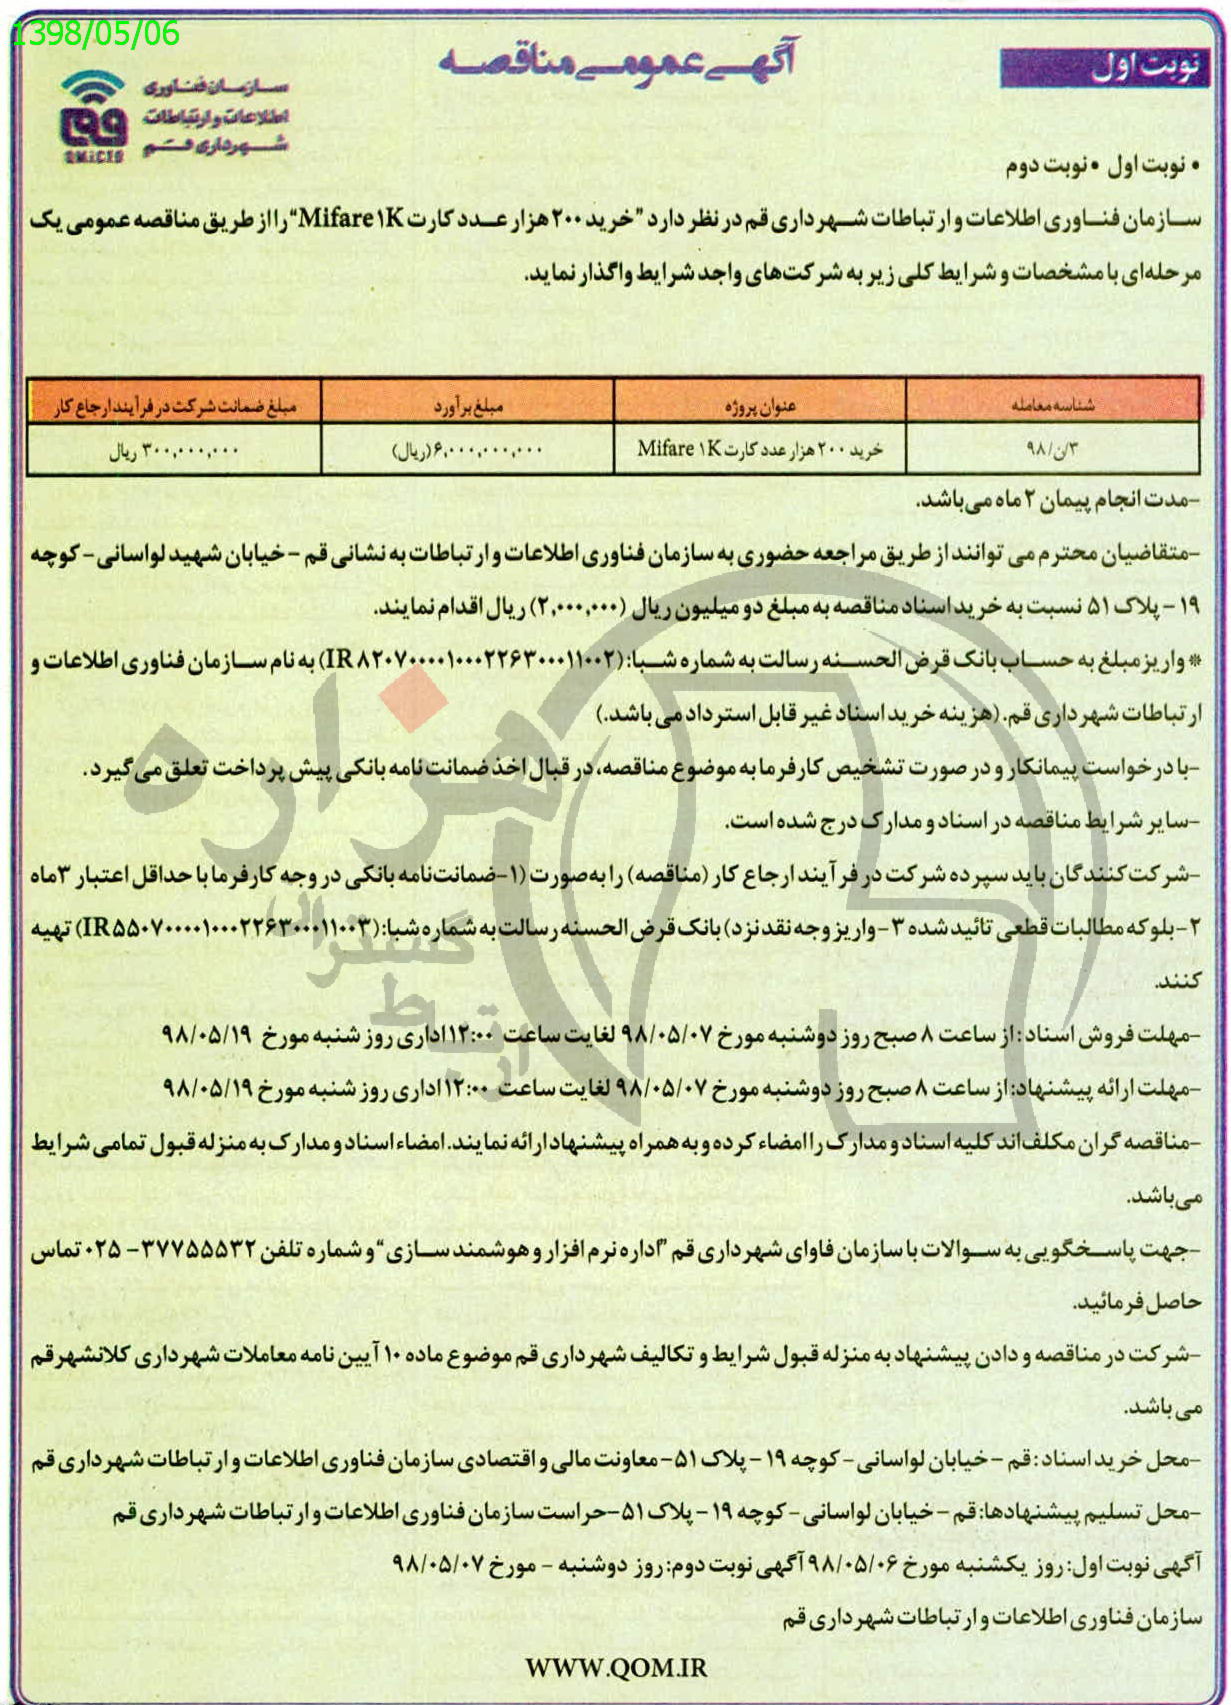 1398/05/06
نوبت اول
آگهی عمومی مناقصه
سازمان فناوری
اطلاعات و ارتباطات
شهرداری قم
QMICTO
• نوبت اول • نوبت دوم
سازمان فناوری اطلاعات و ارتباطات شهرداری قم در نظر دارد "خرید ۲۰۰ هزار عدد کارت Mifare ۱K" را از طریق مناقصه عمومی یک
مرحله‌ای با مشخصات و شرایط کلی زیر به شرکت‌های واجد شرایط واگذار نماید.
شناسه معامله	عنوان پروژه	مبلغ برآورد	مبلغ ضمانت شرکت در فرآیند ارجاع کار
۳/ن/۹۸	خرید ۲۰۰ هزار عدد کارت Mifare ۱K	۶,۰۰۰,۰۰۰,۰۰۰(ریال)	۳۰۰,۰۰۰,۰۰۰ ریال
-مدت انجام پیمان ۲ ماه می‌باشد.
-متقاضیان محترم می توانند از طریق مراجعه حضوری به سازمان فناوری اطلاعات و ارتباطات به نشانی قم - خیابان شهید لواسانی - کوچه
۱۹ - پلاک ۵۱ نسبت به خرید اسناد مناقصه به مبلغ دو میلیون ریال (۲,۰۰۰,۰۰۰) ریال اقدام نمایند.
* واریز مبلغ به حساب بانک قرض الحسنه رسالت به شماره شبا: (IR۸۲۰۷۰۰۰۰۱۰۰۰۲۲۶۳۰۰۰۱۱۰۰۲) به نام سازمان فناوری اطلاعات و
ارتباطات شهرداری قم. (هزینه خرید اسناد غیر قابل استرداد می باشد.)
-با درخواست پیمانکار و در صورت تشخیص کارفرما به موضوع مناقصه، در قبال اخذ ضمانت نامه بانکی پیش پرداخت تعلق می گیرد.
-سایر شرایط مناقصه در اسناد و مدارک درج شده است.
-شرکت‌کنندگان باید سپرده شرکت در فرآیند ارجاع کار (مناقصه) را به‌صورت (۱-ضمانت‌نامه بانکی در وجه کارفرما با حداقل اعتبار ۳ماه
۲-بلوکه مطالبات قطعی تائید شده ۳-واریز وجه نقد نزد) بانک قرض الحسنه رسالت به شماره شبا: (IR۵۵۰۷۰۰۰۰۱۰۰۰۲۲۶۳۰۰۰۱۱۰۰۳) تهیه
کنند.
-مهلت فروش اسناد: از ساعت ۸ صبح روز دوشنبه مورخ ۹۸/۰۵/۰۷ لغایت ساعت ۱۲:۰۰ اداری روز شنبه مورخ ۹۸/۰۵/۱۹
-مهلت ارائه پیشنهاد: از ساعت ۸ صبح روز دوشنبه مورخ ۹۸/۰۵/۰۷ لغایت ساعت ۱۲:۰۰ اداری روز شنبه مورخ ۹۸/۰۵/۱۹
-مناقصه گران مکلف‌اند کلیه اسناد و مدارک را امضاء کرده و به همراه پیشنهاد ارائه نمایند. امضاء اسناد و مدارک به منزله قبول تمامی شرایط
می‌باشد.
-جهت پاسخگویی به سوالات با سازمان فاوای شهرداری قم "اداره نرم افزار و هوشمند سازی" و شماره تلفن ۳۷۷۵۵۵۳۲ - ۰۲۵ تماس
حاصل فرمائید.
-شرکت در مناقصه و دادن پیشنهاد به منزله قبول شرایط و تکالیف شهرداری قم موضوع ماده ۱۰ آیین نامه معاملات شهرداری کلانشهر قم
می باشد.
-محل خرید اسناد: قم - خیابان لواسانی - کوچه ۱۹ - پلاک ۵۱ - معاونت مالی و اقتصادی سازمان فناوری اطلاعات و ارتباطات شهرداری قم
-محل تسلیم پیشنهادها: قم - خیابان لواسانی - کوچه ۱۹ - پلاک ۵۱ - حراست سازمان فناوری اطلاعات و ارتباطات شهرداری قم
آگهی نوبت اول: روز یکشنبه مورخ ۹۸/۰۵/۰۶ آگهی نوبت دوم: روز دوشنبه - مورخ ۹۸/۰۵/۰۷
سازمان فناوری اطلاعات و ارتباطات شهرداری قم
WWW.QOM.IR
هزاره
گستران
ارتباط